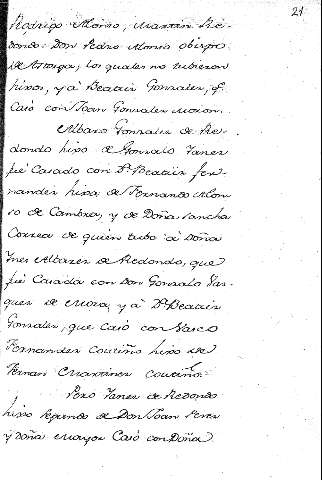 21
Rodrigo Alonso, Martin Re-
dondo. Don Pedro Alonso obispo
de Astorga, los quales no tubieron
hixos, y á Beatriz Gonzalez, q.
Casó con Joan Gonzalez
Albaro Gonzalez de Re-
dondo hixo de Gonzalo Yanez
fué Casado con Dª Beatriz fer-
nandez hixa de Fernando Alon-
so de Cambra, y de Doña Sancha
Correa de quien tubo á Doña
Ines Albarez de Redondo, que
fué Casada con Don Gonzalo Vas-
quez de Moura, y á Dª Beatriz
Gonzalez, que Casó con Vasco
Fernandez Coutiño hixo de
Fernan Martinez Coutiño.
Pero Yanez de Redondo
hixo segundo de Don Joan Perez
y doña Mayor Casó con Doña